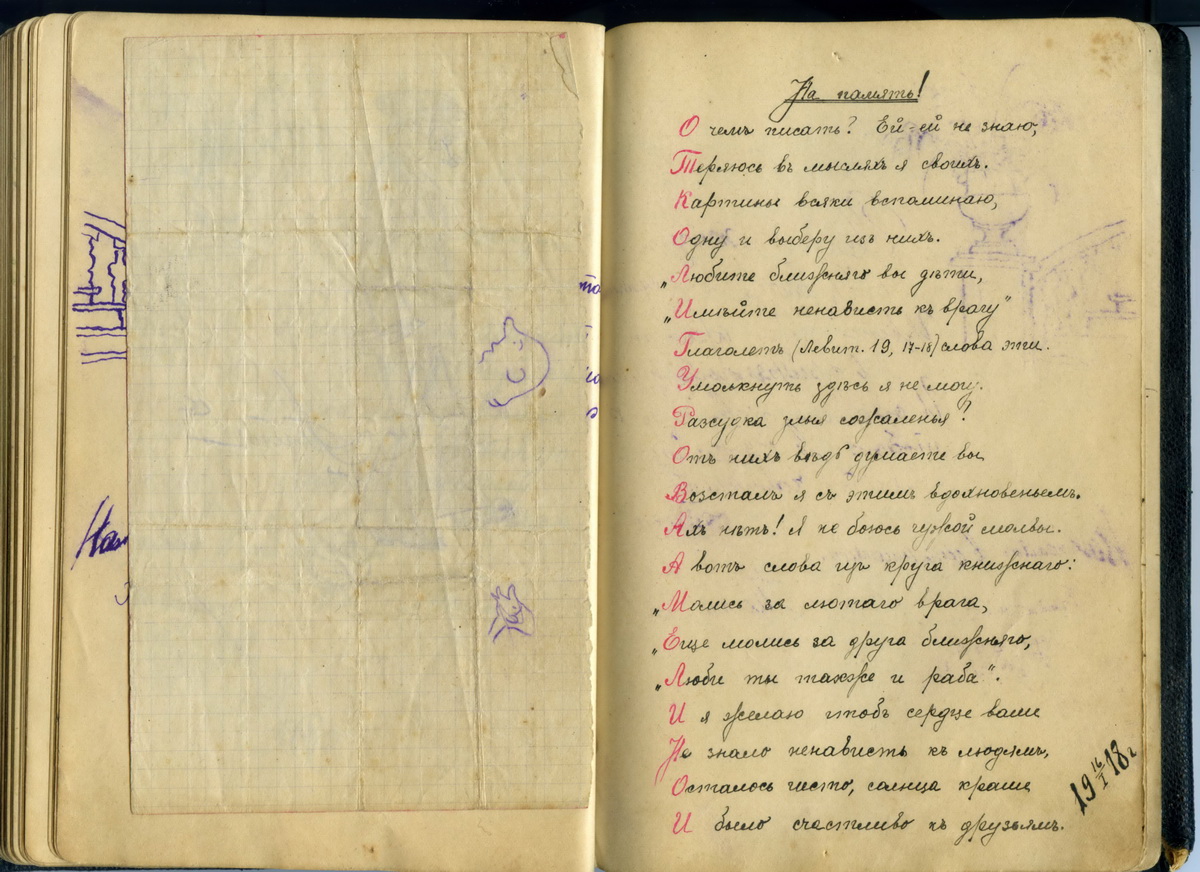 На память!
О чемъ писать? Ей-ей не знаю,
Теряюсь въ мысляхъ я своихъ.
Картины всяки вспоминаю,
Одну и выберу изъ нихъ.
„Любите ближняго вы дѣти,
„Имѣйте ненависть къ врагу"
Глаголетъ (Левит. 19, 17-18) слова эти.
Умолкнуть здѣсь я не могу.
Разсудка злыя сожаленья?
Отъ нихъ думаете вы
Возсталъ я съ этимъ вдохновеньемъ.
Ахъ нѣтъ! Я не боюсь чужой молвы.
А вотъ слова изъ круга книжнаго:
„Молись за лютаго врага,
„Еще молись за друга ближняго,
„Люби ты также и раба".
И я желаю чтобъ сердце ваше
Не знало ненависть къ людямъ,
Осталось чисто, солнца краше
И было счастливо къ друзьямъ.
19 16/I 18 г.